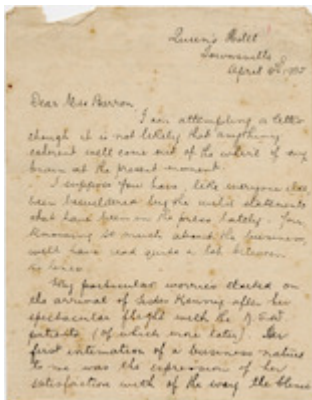 Queen's Hotel
Townsville
April
Dear Miss Barron,
I am attempting a letter
though it is not likely that anything
coherent will come out of the whirl of my
brain at the present moment.
I suppose you have, like everyone else
been bewildered by the wild statements
that have been in the press lately. You,
knowing so much about the business,
will have read quite a lot between
the lines.
My particular worries started on
the arrival of Sister Kenny after her
spectacular flight with the
patients (of which more later). Her
first intimation of a business nature
to me was the expression of her
satisfaction with of the way the